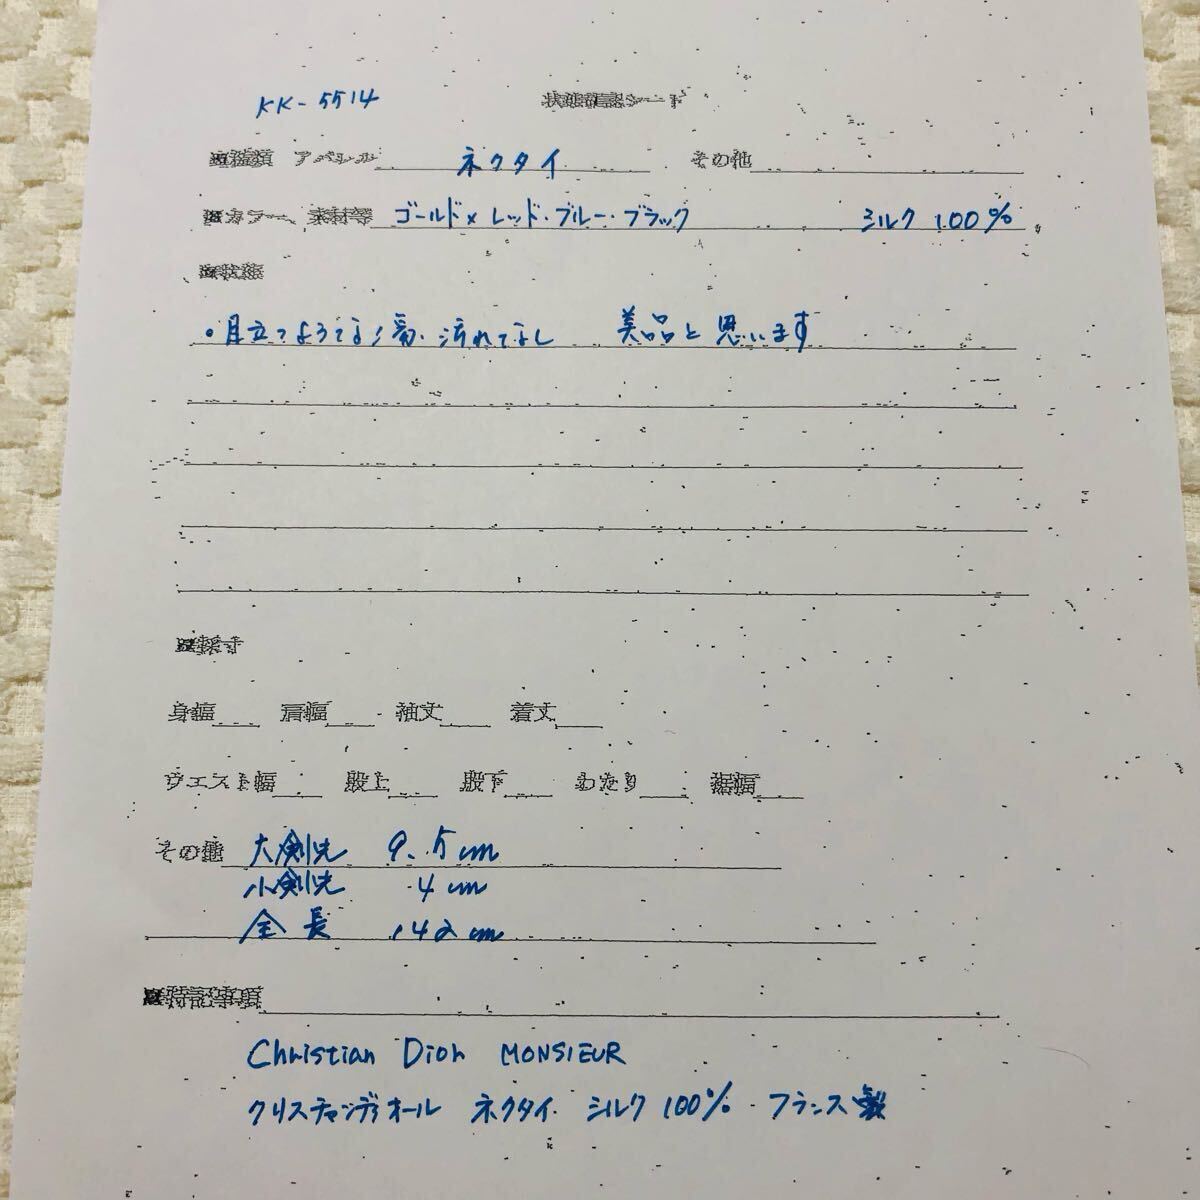 KK-5514 状態確認シート
■種類 アパレル ネクタイ その他
■カラー、素材等 ゴールド×レッド・ブルー・ブラック シルク 100%
■状態
・目立つような傷、汚れなし 美品と思います
■採寸
身幅 肩幅 袖丈 着丈
ウエスト幅 股上 股下 わたり 裾幅
その他 大剣先 9.5cm
小剣先 4cm
全長 142cm
■特記事項
Christian Dior MONSIEUR
クリスチャンディオール ネクタイ シルク 100% フランス製